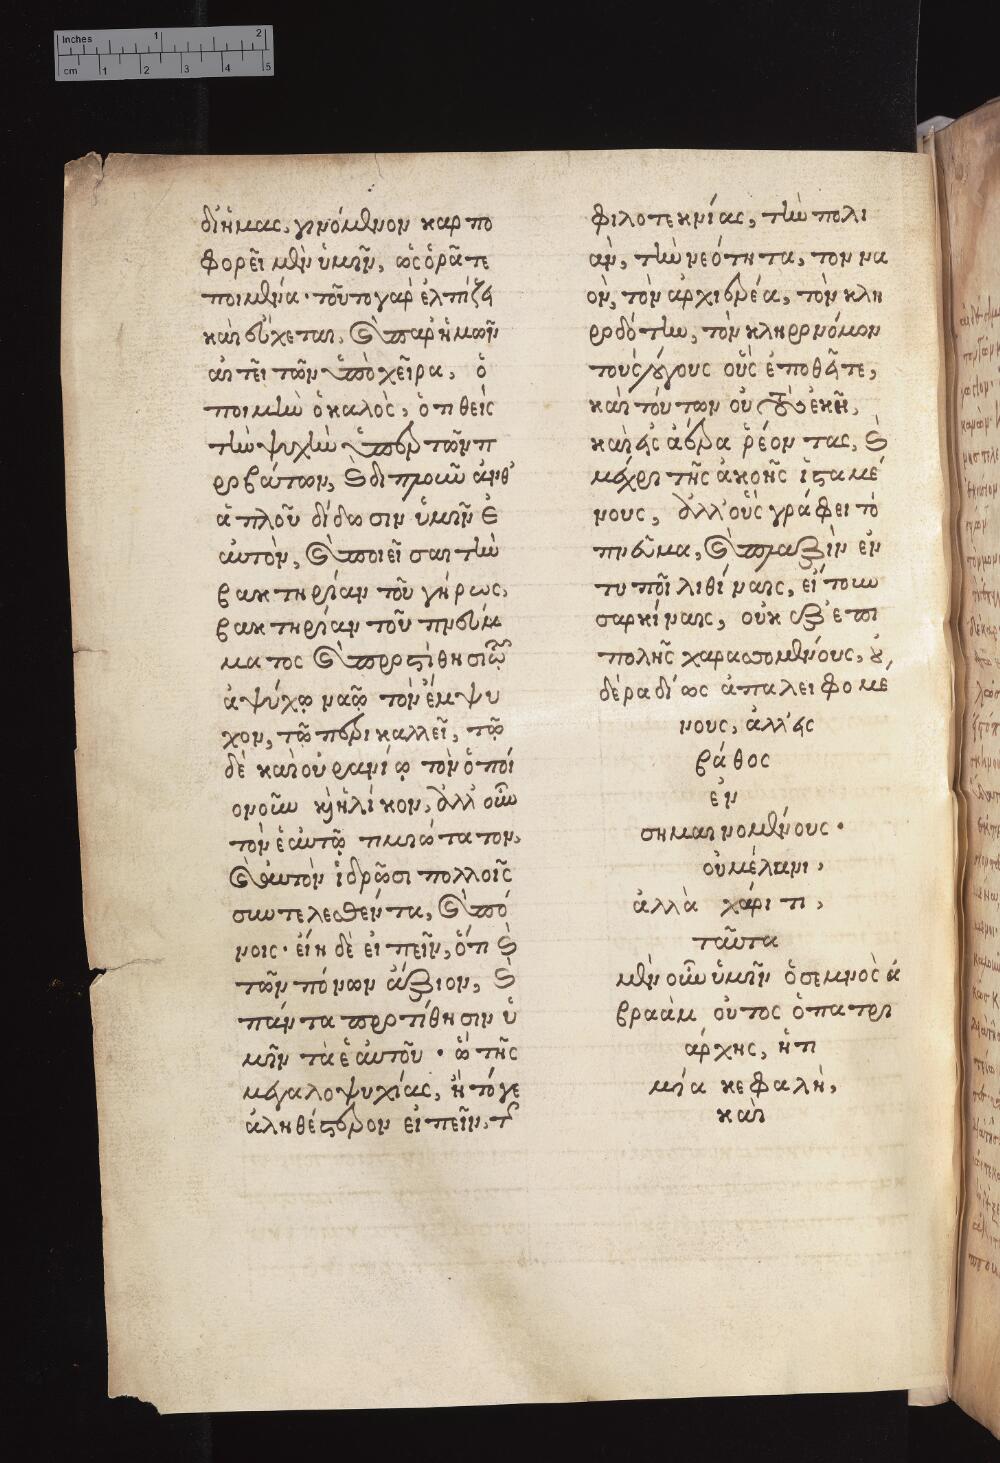 δι' ἡμᾶς, γινόμενον καρπο
φορεῖ μὲν ὑμῖν, ὡς ὁρᾶτε
ποιμένα· τοῦτο γὰρ ἐλπίζει
καὶ εὔχεται, καὶ παρ ἡμῶν
αἰτεῖ τῶν ὑπὸ χεῖρα, ὁ
ποιμὴν ὁ καλὸς, ὁ τιθεὶς
τὴν ψυχὴν ὑπὲρ τῶν π
ροβάτων, καὶ διπλοῦν ἀνθ'
ἁπλοῦ δίδωσιν ὑμῖν ἑ
αυτὸν, καὶ ποιεῖσαι τὴν
βακτηρίαν τοῦ γήρως,
βακτηρίαν τοῦ πνεύμ
ματος καὶ προστίθησι τῷ
ἀψύχῳ ναῷ τὸν ἔμψυ
χον, τῷ περικαλλεῖ, τῷ
δὲ καὶ οὐρανίῳ τὸν ὁποί
ονοῦν καὶ ἡλίκον, ἀλλ' οὖν
τὸν ἑαυτῷ τιμιώτατον,
καὶ αὐτὸν ἱδρῶσι πολλοῖς
συντελεσθέντα, καὶ πό
νοις· εἴη δὲ εἰπεῖν, ὅτι καὶ
τῶν πόνων ἄξιον, καὶ
πάντα προτίθησιν ὑ
μῖν τὰ ἑαυτοῦ· ὢ τῆς
μεγαλοψυχίας, ἢ τό γε
ἀληθέστερον εἰπεῖν, τῆς
φιλοτεκνίας, τὴν πολι
ὰν, τὴν νεότητα, τὸν να
ὸν, τὸν ἀρχιερέα, τὸν κλη
ροδότην, τὸν κληρονόμον
τοὺς λόγους οὓς ἐποθεῖτε,
καὶ τούτων οὐ τοὺς εἰκῆ,
καὶ εἰς ἀέρα ῥέοντας, καὶ
μέχρι τῆς ἀκοῆς ἱσταμέ
νους, ἀλλ' οὓς γράφει τὸ
πνεῦμα, καὶ πλαξὶν ἐν
τυποῖ λιθίναις, εἴτουν
σαρκίναις, οὐκ ἐξ ἐπι
πολῆς χαρασσομένους, οὐ
δὲ ραδίως ἀπαλειφομέ
νους, ἀλλ' εἰς
βάθος
ἐν
σημαινομένους·
οὐ μέλανι,
ἀλλὰ χάριτι,
ταῦτα
μὲν οὖν ὑμῖν ὁ σεμνὸς ἀ
βραὰμ οὗτος ὁ πατρι
άρχης, ἡ τι
μία κεφαλὴ,
καὶ